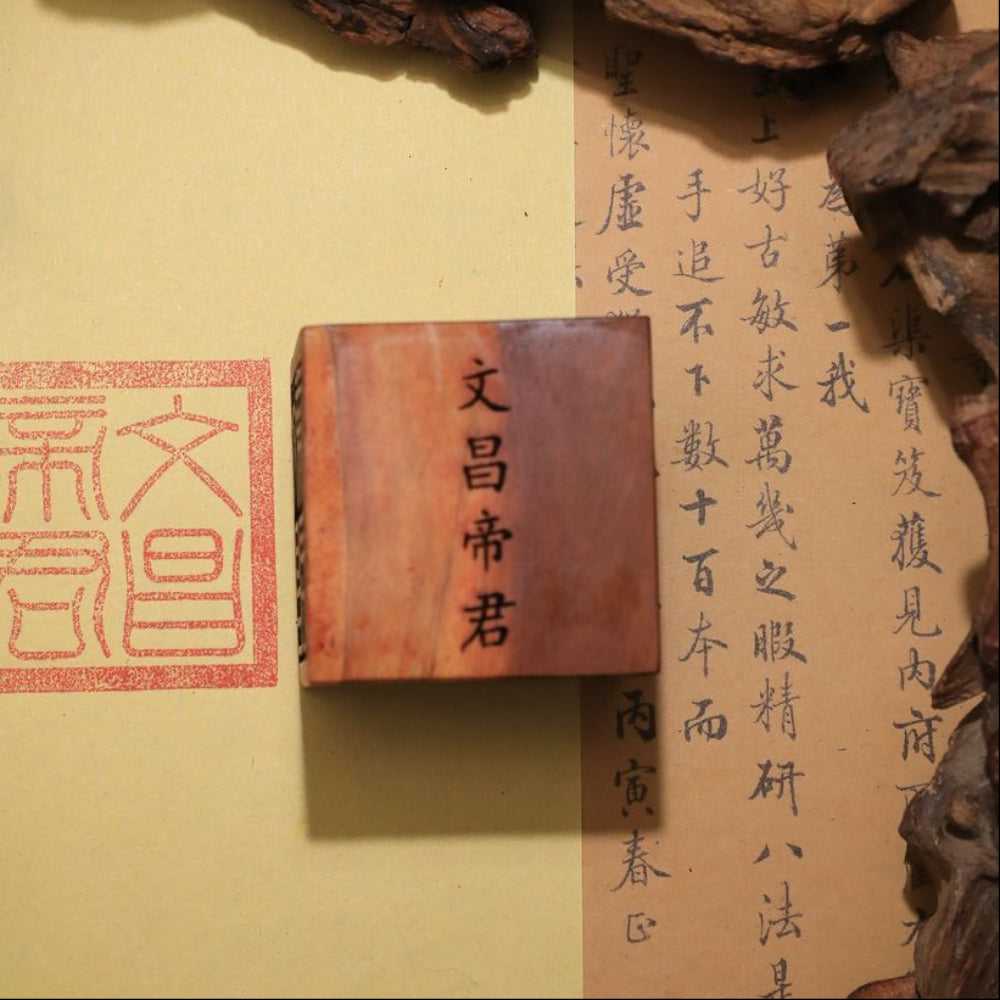 文昌帝君
文昌
帝君
渠寶笈獲見內府
第一我
上好古敏求萬幾之暇精研八法是
手追不下數十百本而
聖懷虛受
丙寅春正